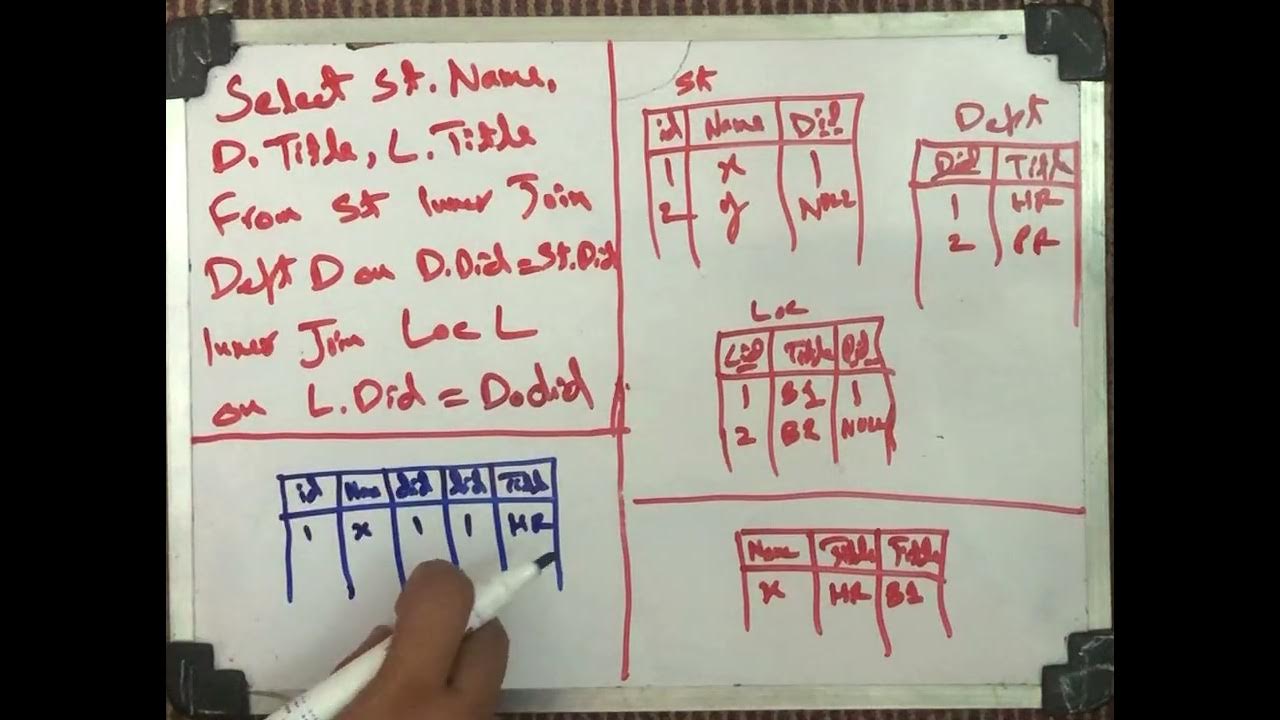 Select St. Name,
D. Title, L. Title
From St Inner Join
Dept D on D.Did = St.Did
Inner Join Loc L
on L.Did = D.did
St
id Name Did
1 x 1
2 y NULL
Dept
Did Title
1 HR
2 PR
Loc
Lid Title Did
1 B1 1
2 B2 NULL
id Name did did Title
1 x 1 1 HR
Name Title Title
x HR B1